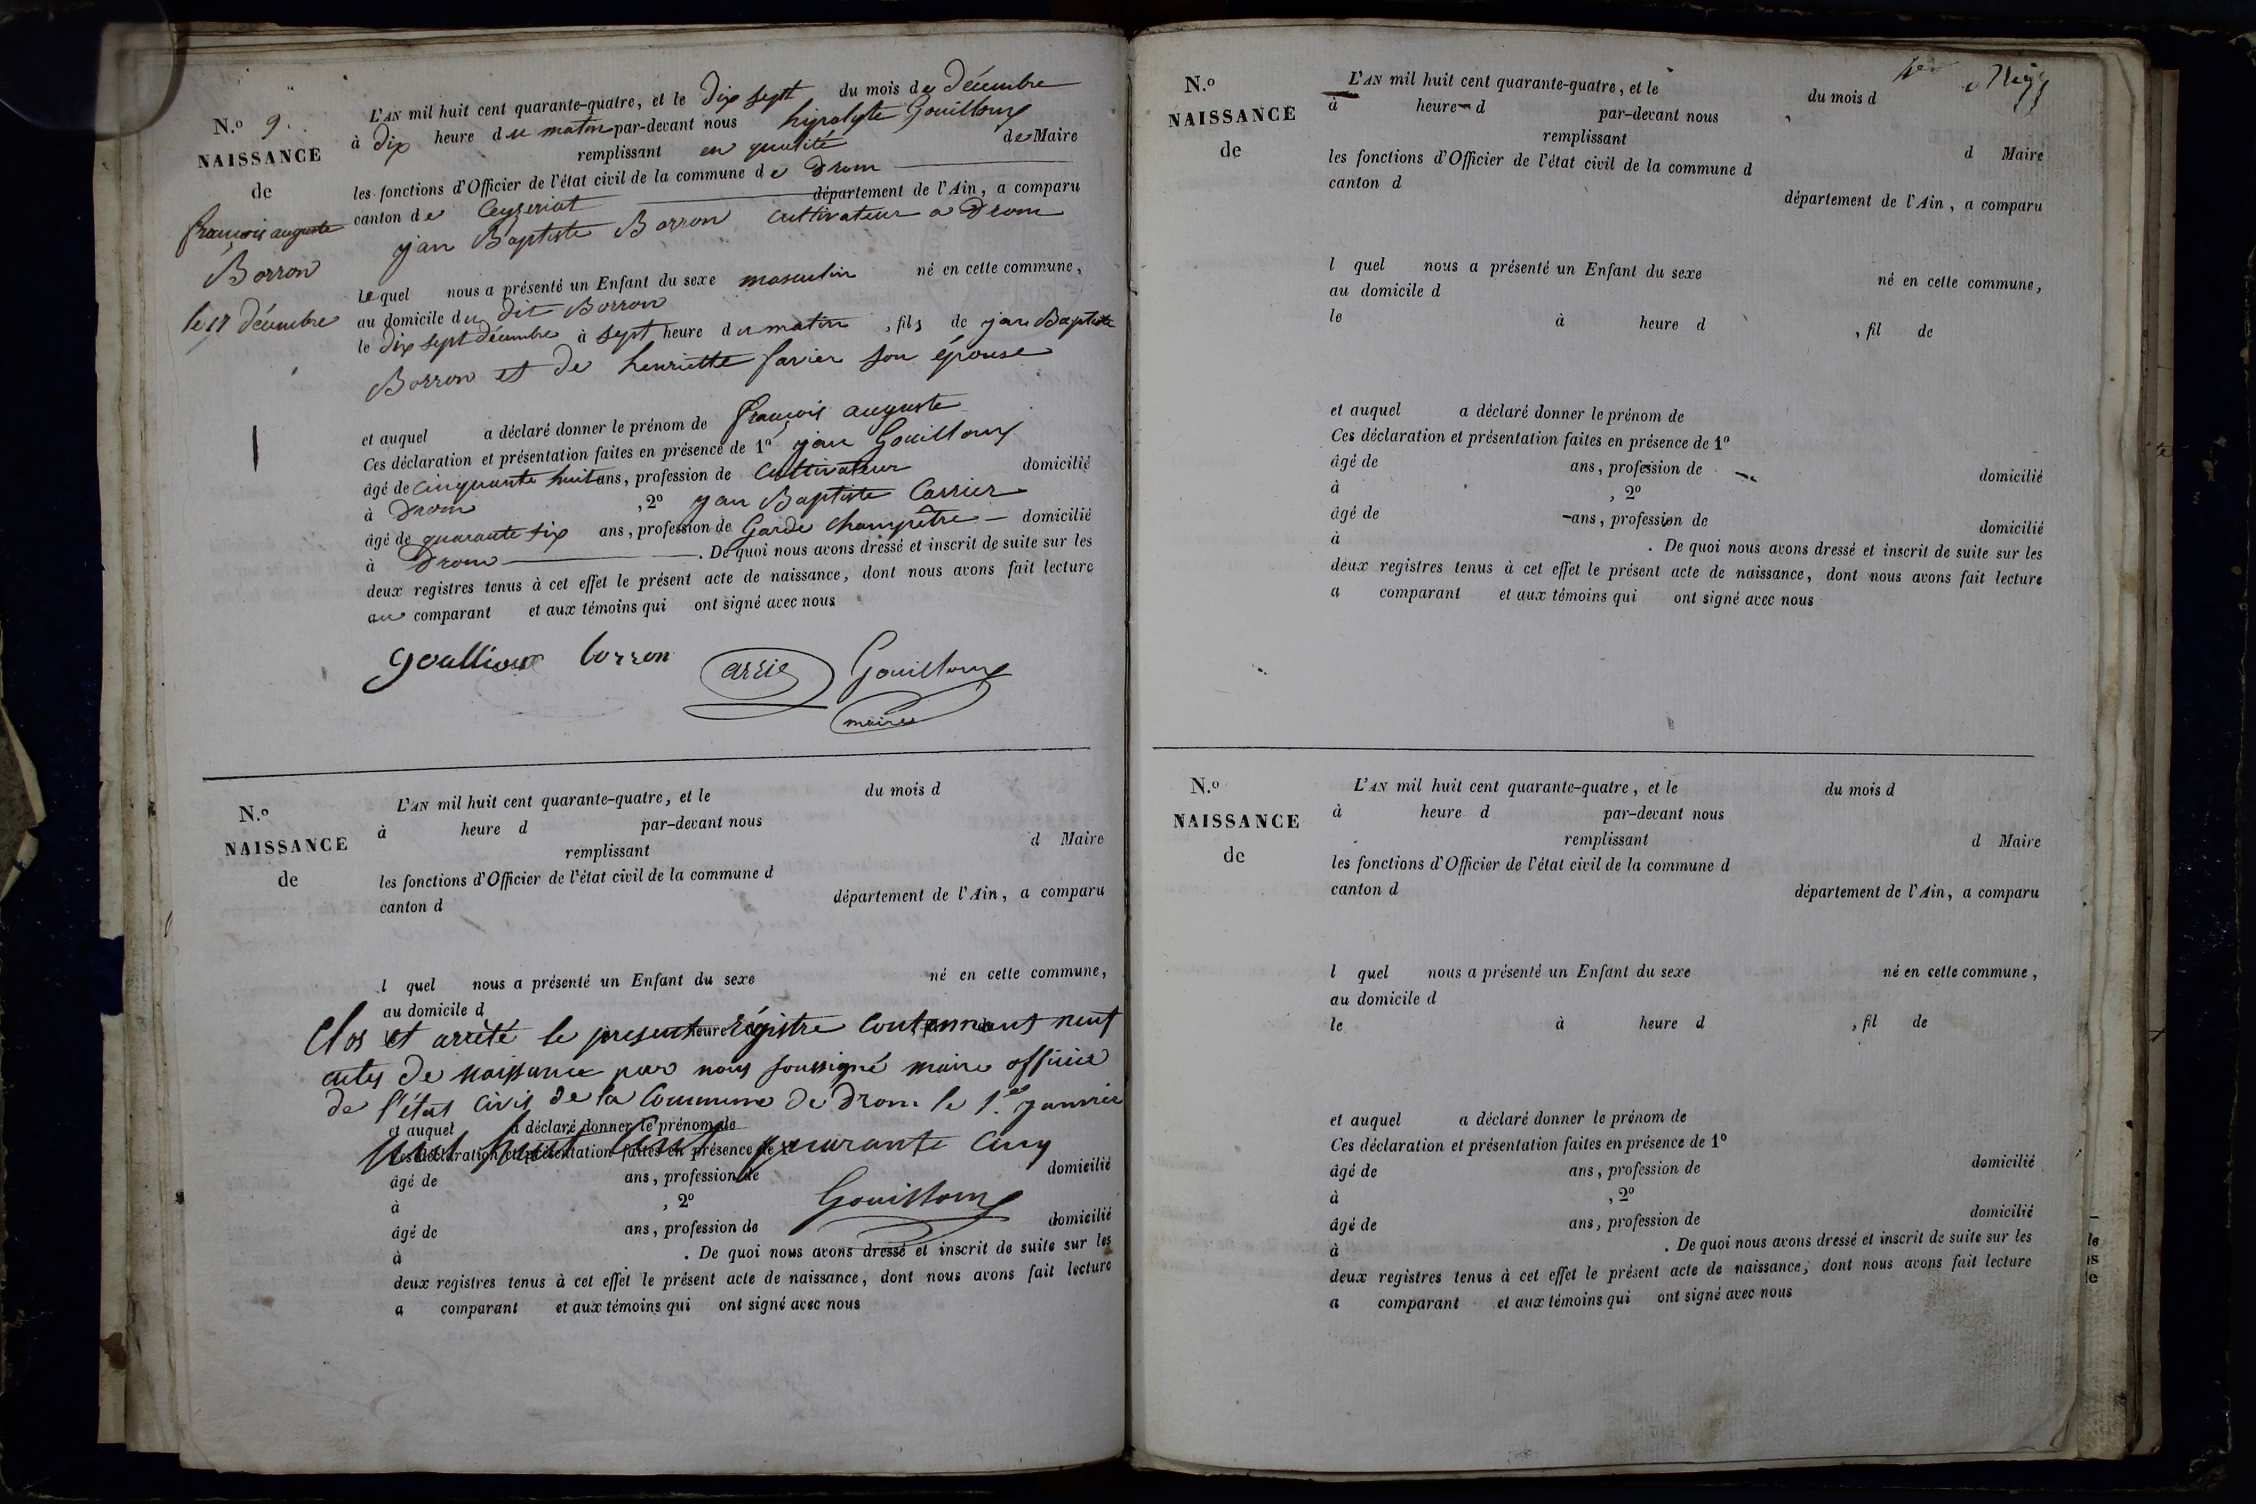 N.º 9.
NAISSANCE
de
françois auguste
Borron
le 17 décembre
L'AN mil huit cent quarante-quatre, et le dix sept du mois de décembre
à dix heure du matin par-devant nous hipolyte Gouilloux
remplissant en qualité de Maire
les fonctions d'Officier de l'état civil de la commune de Drom
canton de Ceyzeriat département de l'Ain, a comparu
jan Baptiste Borron cultivateur a Drom
Lequel nous a présenté un Enfant du sexe masculin né en cette commune,
au domicile du dit Borron
le dix sept décembre à sept heure du matin , fils de jan Baptiste
Borron et de henriette favier son épouse
et auquel a déclaré donner le prénom de françois auguste
Ces déclaration et présentation faites en présence de 1º jan Gouilloux
âgé de cinquante huit ans, profession de cultivateur domicilié
à Drom , 2º jan Baptiste Carrier
âgé de quarante six ans, profession de Garde champêtre domicilié
à Drom . De quoi nous avons dressé et inscrit de suite sur les
deux registres tenus à cet effet le présent acte de naissance, dont nous avons fait lecture
au comparant et aux témoins qui ont signé avec nous
goulliou borron Gouilloux
maire
N.º
NAISSANCE
de
L'AN mil huit cent quarante-quatre, et le du mois d
à heure d par-devant nous
remplissant d Maire
les fonctions d'Officier de l'état civil de la commune d
canton d département de l'Ain, a comparu
l quel nous a présenté un Enfant du sexe né en cette commune,
au domicile d
Clos et arrêté le present régistre contennant neuf
actes de naissance par nous soussigné maire officier
de l'état civil de la Commune de Drom le 1.er janvier
et auquel a déclaré donner le prénom de
mil huit cent quarante cinq
Ces déclaration et présentation faites en présence de 1º
âgé de ans, profession de domicilié
à , 2º
Gouilloux
âgé de ans, profession de domicilié
à . De quoi nous avons dressé et inscrit de suite sur les
deux registres tenus à cet effet le présent acte de naissance, dont nous avons fait lecture
a comparant et aux témoins qui ont signé avec nous
N.º
NAISSANCE
de
L'AN mil huit cent quarante-quatre, et le du mois d
à heure d par-devant nous
remplissant d Maire
les fonctions d'Officier de l'état civil de la commune d
canton d département de l'Ain, a comparu
l quel nous a présenté un Enfant du sexe né en cette commune,
au domicile d
le à heure d , fil de
et auquel a déclaré donner le prénom de
Ces déclaration et présentation faites en présence de 1º
âgé de ans, profession de domicilié
à , 2º
âgé de ans, profession de domicilié
à . De quoi nous avons dressé et inscrit de suite sur les
deux registres tenus à cet effet le présent acte de naissance, dont nous avons fait lecture
a comparant et aux témoins qui ont signé avec nous
N.º
NAISSANCE
de
L'AN mil huit cent quarante-quatre, et le du mois d
à heure d par-devant nous
remplissant d Maire
les fonctions d'Officier de l'état civil de la commune d
canton d département de l'Ain, a comparu
l quel nous a présenté un Enfant du sexe né en cette commune,
au domicile d
le à heure d , fil de
et auquel a déclaré donner le prénom de
Ces déclaration et présentation faites en présence de 1º
âgé de ans, profession de domicilié
à , 2º
âgé de ans, profession de domicilié
à . De quoi nous avons dressé et inscrit de suite sur les
deux registres tenus à cet effet le présent acte de naissance, dont nous avons fait lecture
a comparant et aux témoins qui ont signé avec nous